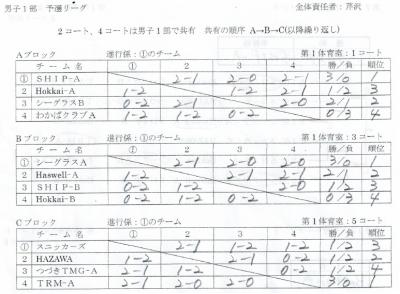 男子1部　予選リーグ　全体責任者：芹沢
2コート、4コートは男子1部で共有　共有の順序 A→B→C(以降繰り返し)
Aブロック　進行係：①のチーム　第1体育室：1コート
チーム名　①　2　3　4　勝／負　順位
① SHIP-A　2-1　2-0　2-1　3/0　1
2 Hokkai-A　1-2　1-2　2-1　1/2　3
3 シーグラスB　0-2　2-1　2-0　2/1　2
4 わかばクラブA　1-2　1-2　0-2　0/3　4
Bブロック　進行係：①のチーム　第1体育室：3コート
チーム名　①　2　3　4　勝／負　順位
① シーグラスA　2-1　2-0　2-0　3/0　1
2 Haswell-A　1-2　2-1　2-1　2/1　2
3 SHIP-B　0-2　1-2　2-0　1/2　3
4 Hokkai-B　0-2　1-2　0-2　0/3　4
Cブロック　進行係：①のチーム　第1体育室：5コート
チーム名　①　2　3　4　勝／負　順位
① スニッカーズ　2-1　1-2　1-2　1/2　3
2 HAZAWA　1-2　2-1　0-2　1/2　4
3 つづきTMG-A　2-1　1-2　0-2　1/2　2
4 TRM-A　2-1　2-0　2-0　3/0　1